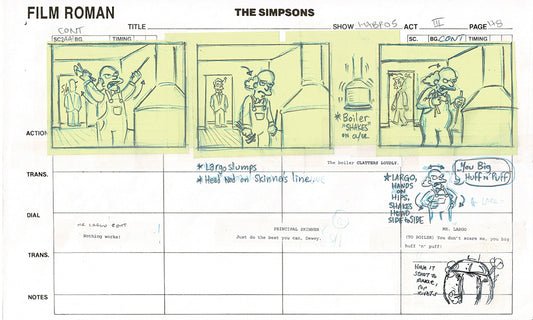 FILM ROMAN
THE SIMPSONS
TITLE
SHOW HABF05
ACT III
PAGE 45
CONT
SC. BG. TIMING
SC. BG. CONT TIMING
* Boiler
"SHAKES"
ON a/c
ACTION
The boiler CLATTERS LOUDLY.
* Largo slumps
* Head Nod on Skinner's line
TRANS.
* LARGO,
HANDS
ON
HIPS,
SHAKES
HEAD
SIDE to SIDE
You Big
Huff n' Puff
DIAL
MR. LARGO CONT
Nothing works!
PRINCIPAL SKINNER
Just do the best you can, Dewey.
MR. LARGO
(TO BOILER) You don't scare me, you big
huff 'n' puff!
TRANS.
HAVE IT
START TO
NOTES